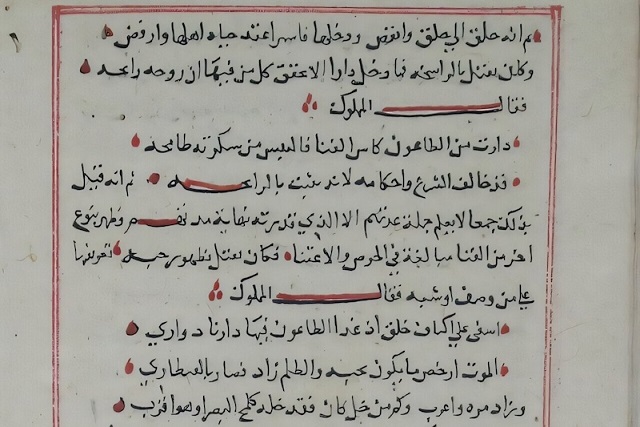 ثم انه حلق الى جلق وانقض ودخلها فاسرا عند جباه اهلها وارفض
وكان يقتل بالرائحة فما دخل دارا الا عقق كل من فيها ان روحه رائحه
فقال المملوك
دارت من الطاعون كاس الفنا فالنفس من سكرته طافحه
قد خالف الشرع واحكامه لانه يثبت بالرائحه ثم انه قتل
بذلك جمعا لا يعلم جملة عدتهم الا الذي قدرته نهاية مد نقسم وظهر بنوع
اخر من الفنا مبالغة في الحرص والاعتنا فكان يقتل بظهور حبه
على من وصف اوشبه فقال المملوك
اسفي على اكناف جلق اذ غدا الطاعون فيها دارنا دواري
الموت ارخص ما يكون بحبه والظلم زاد فصار بالقنطاري
وزاد مره واعرب وكم من جل كان فقد خله كلمح البصر او هو اقرب